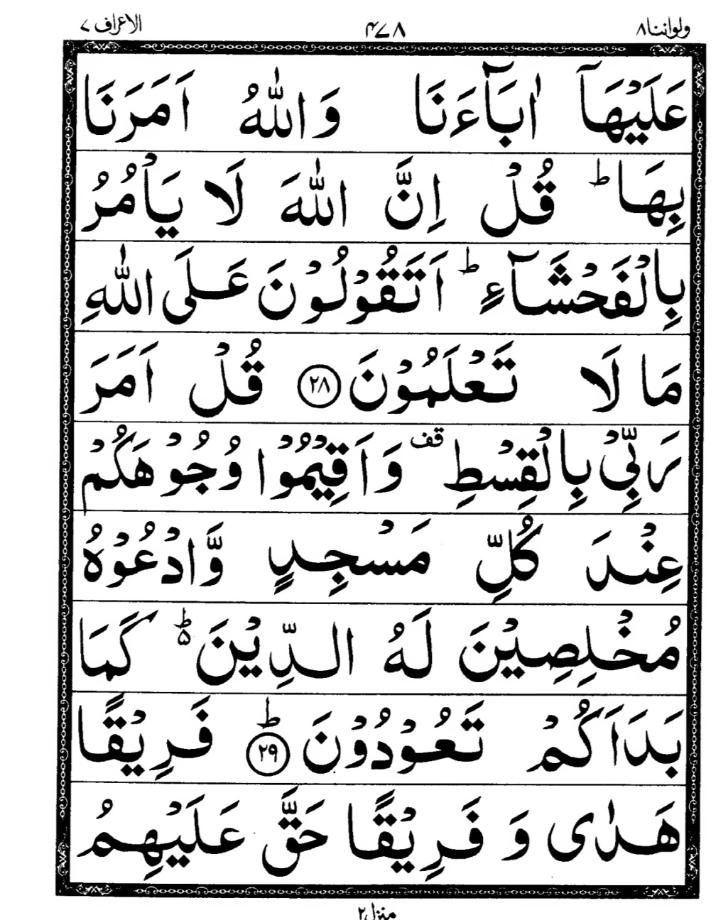 ولواننا٨ ٤٧٨ الاعراف ٧
عَلَيْهَاۤ اٰبَآءَنَا وَاللّٰهُ اَمَرَنَا
بِهَا ؕ قُلْ اِنَّ اللّٰهَ لَا يَاْمُرُ
بِالْفَحْشَآءِ ؕ اَتَقُوْلُوْنَ عَلَى اللّٰهِ
مَا لَا تَعْلَمُوْنَ ۝٢٨ قُلْ اَمَرَ
رَبِّيْ بِالْقِسْطِ ۟قف وَاَقِيْمُوْا وُجُوْهَكُمْ
عِنْدَ كُلِّ مَسْجِدٍ وَّادْعُوْهُ
مُخْلِصِيْنَ لَهُ الدِّيْنَ ۬ؕ كَمَا
بَدَاَكُمْ تَعُوْدُوْنَ ؕ۝٢٩ فَرِيْقًا
هَدٰى وَ فَرِيْقًا حَقَّ عَلَيْهِمُ
منزل٢